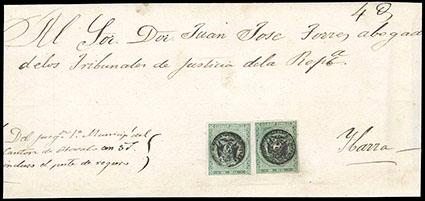 40
Al Sor. Dor Juan José Torres abogad
de los Tribunales de Justicia de la Repca.
Del juzgo. 1o. Municipl. del
Canton de Otavalo con 5 f.
inclusos el porte de regreso
Ibarra